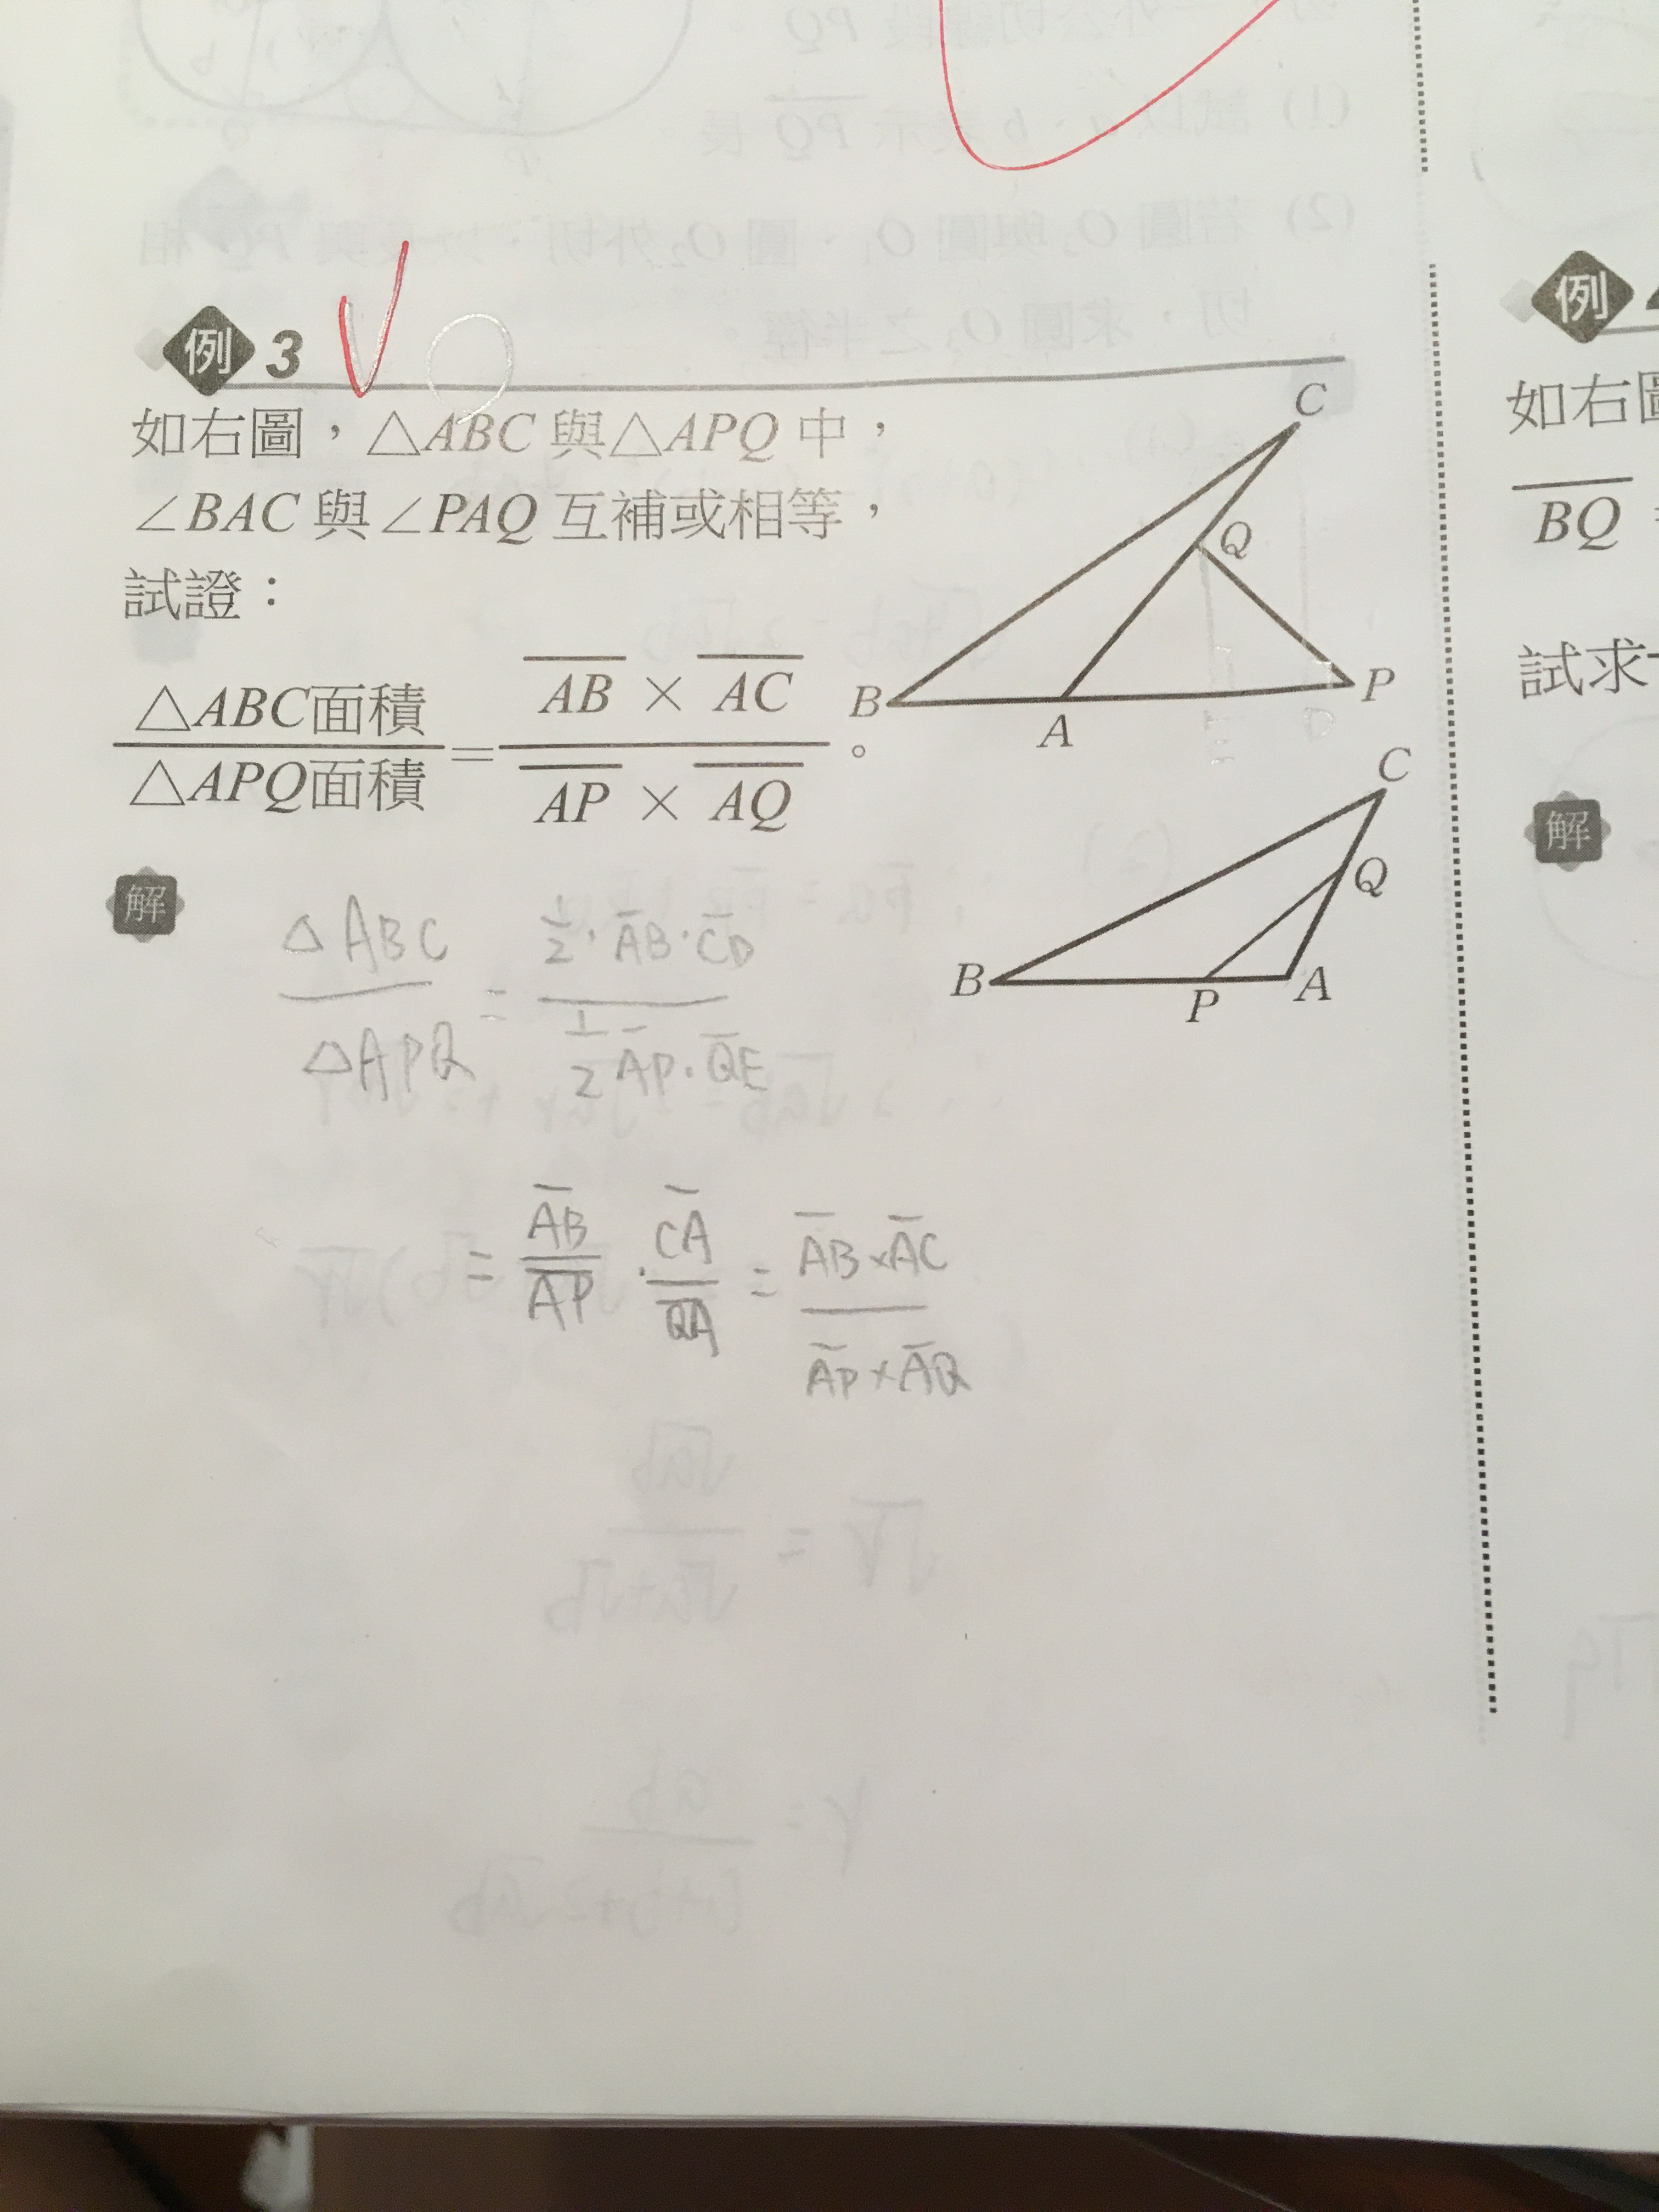 例 3
如右圖，△ABC 與△APQ 中，
∠BAC 與∠PAQ 互補或相等，
試證：
△ABC面積 / △APQ面積 = AB × AC / AP × AQ 。
C
Q
B
A
P
C
Q
B
P
A
解
△ABC / △APQ = 1/2·AB·CD / 1/2 AP·QE
= AB/AP · CA/QA = AB×AC / AP×AQ
例
如右
BQ
試求
解